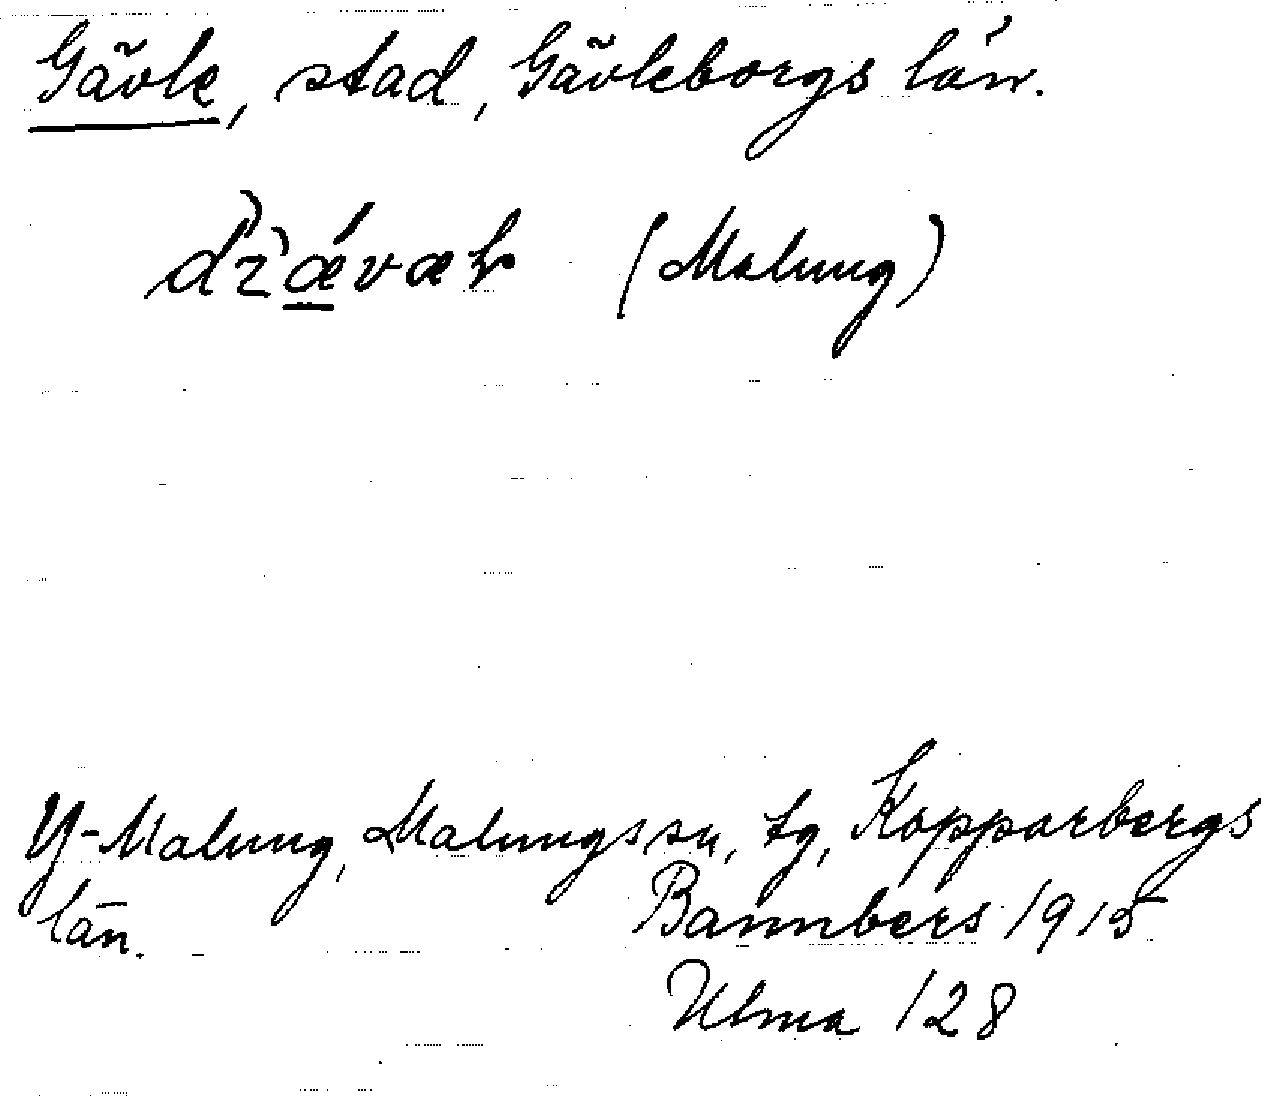 Gävle, stad, Gävleborgs län.
(Malung)
Y-Malung, Malungs sn, tg, Kopparbergs
län.
Bannbers 1915
Ulma 128